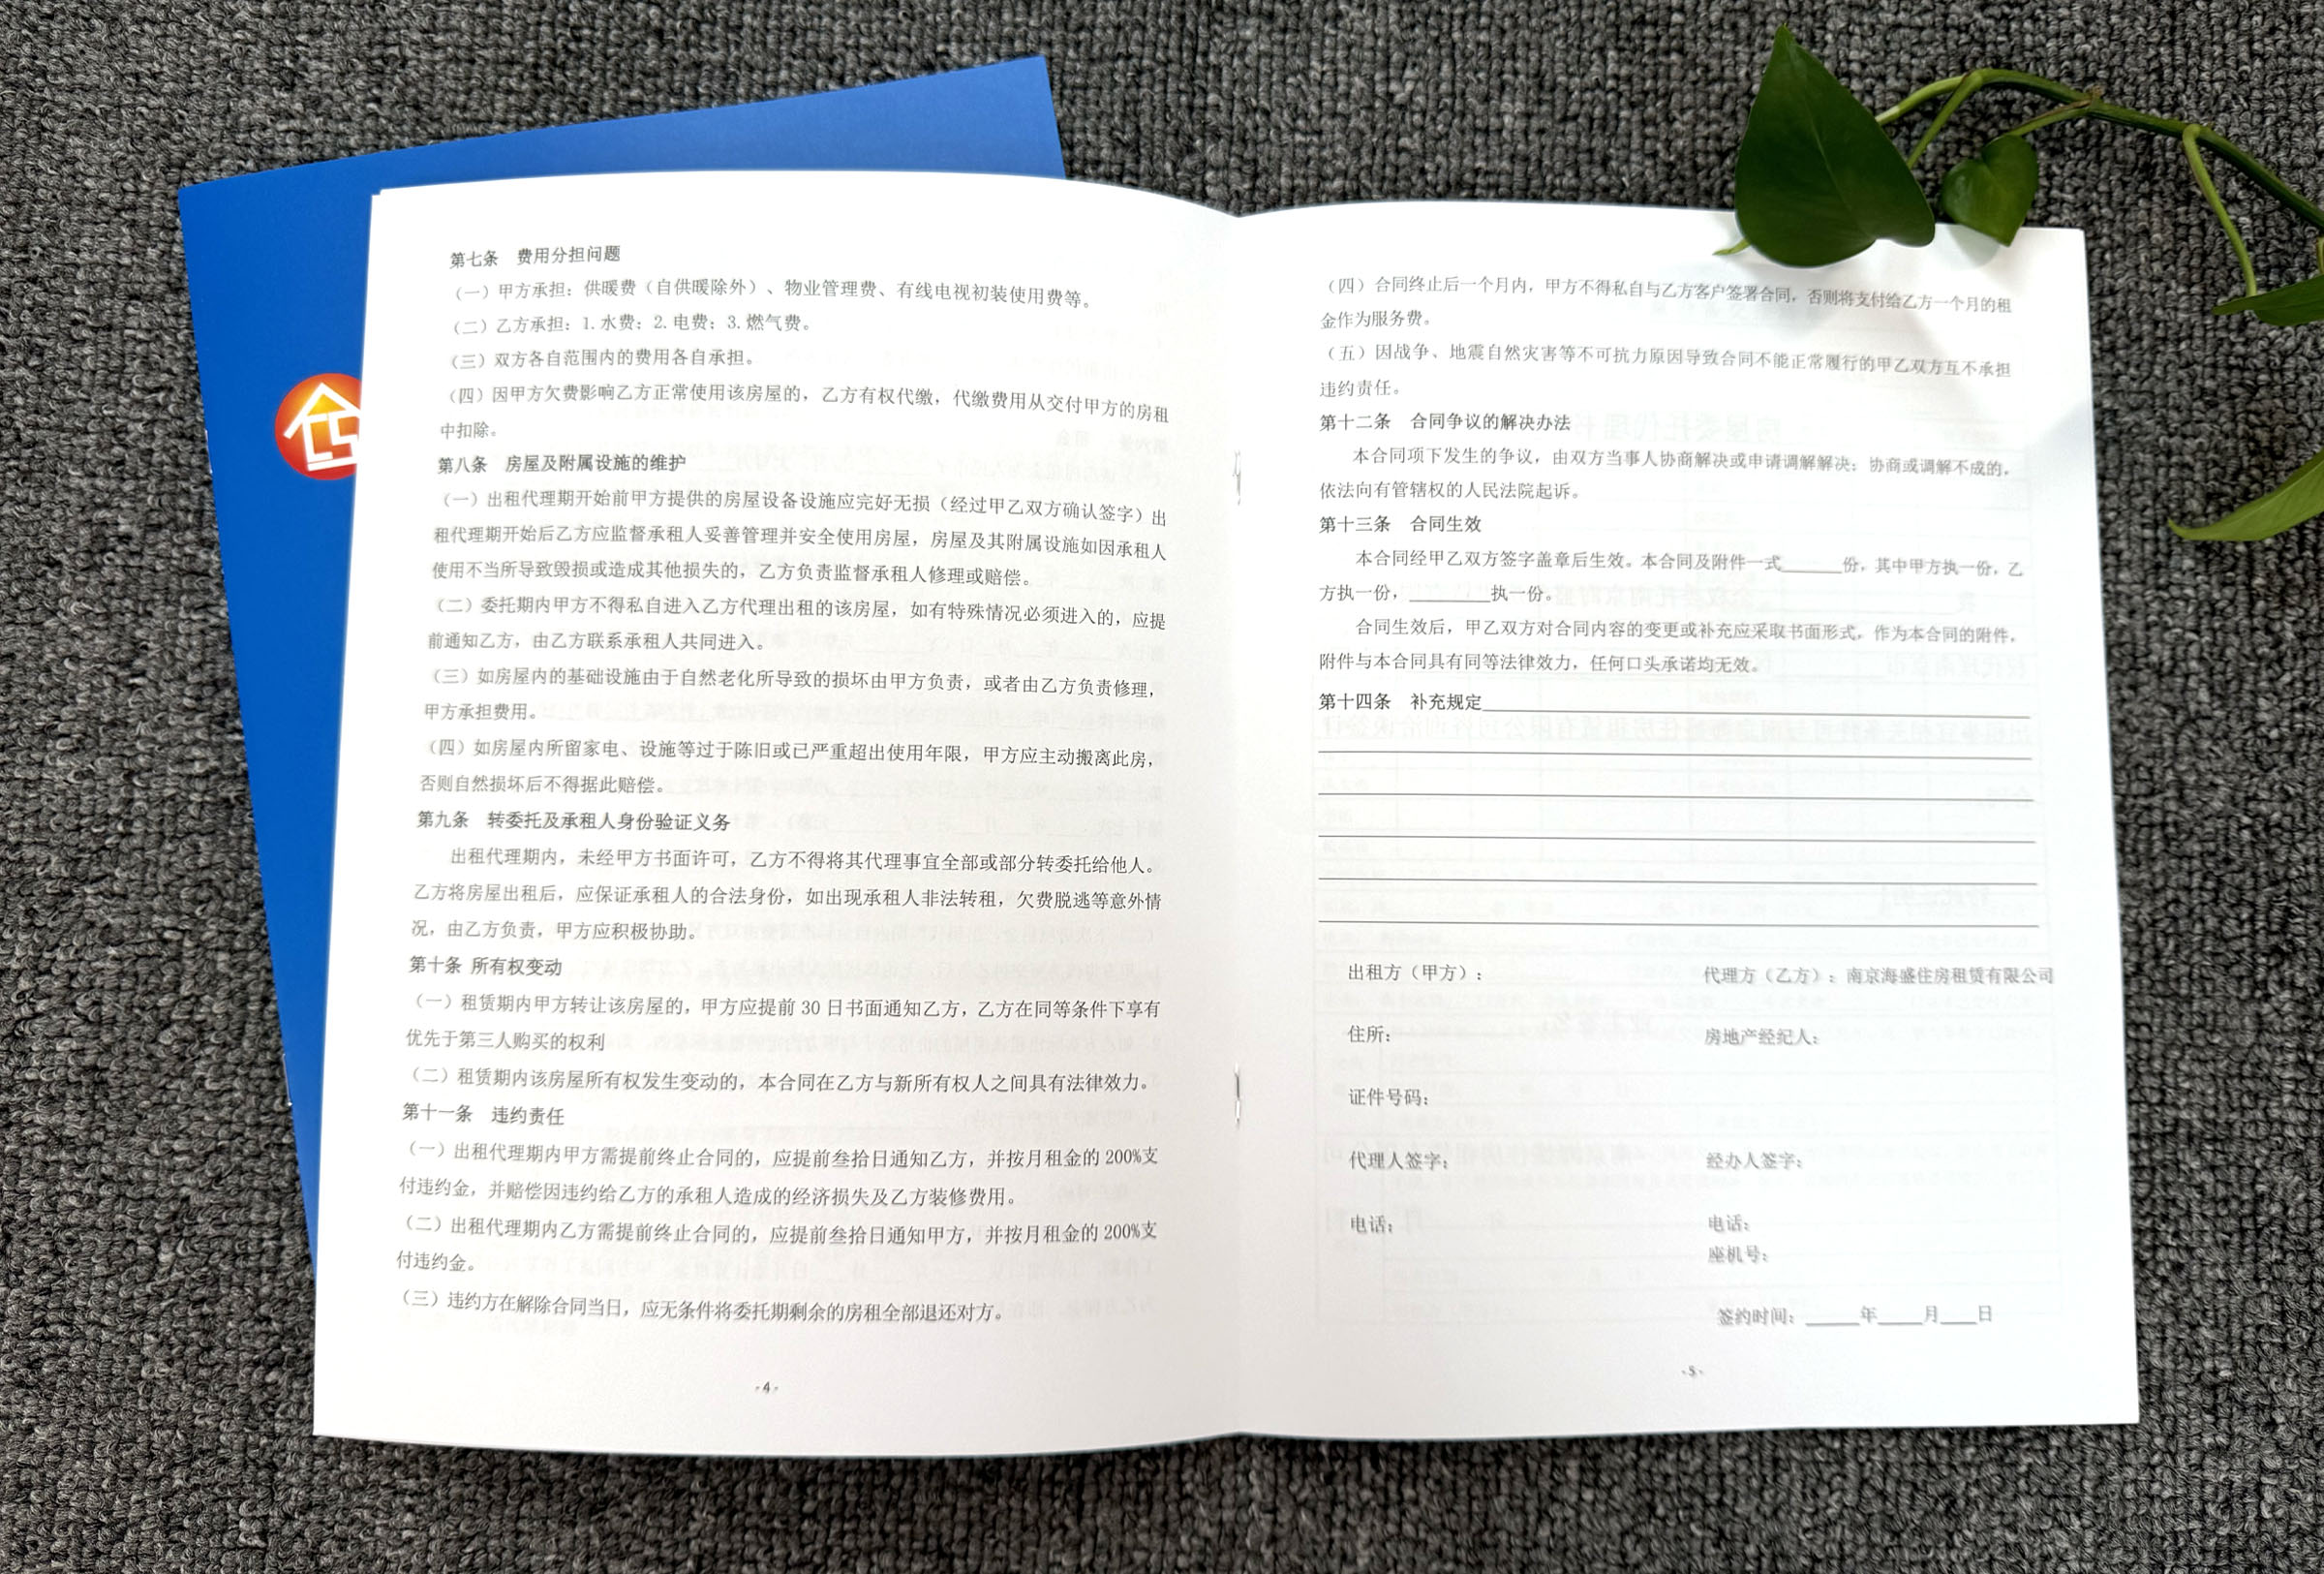 第七条 费用分担问题
（一）甲方承担：供暖费（自供暖除外）、物业管理费、有线电视初装使用费等。
（二）乙方承担：1.水费；2.电费；3.燃气费。
（三）双方各自范围内的费用各自承担。
（四）因甲方欠费影响乙方正常使用该房屋的，乙方有权代缴，代缴费用从交付甲方的房租
中扣除。
第八条 房屋及附属设施的维护
（一）出租代理期开始前甲方提供的房屋设备设施应完好无损（经过甲乙双方确认签字）出
租代理期开始后乙方应监督承租人妥善管理并安全使用房屋，房屋及其附属设施如因承租人
使用不当所导致毁损或造成其他损失的，乙方负责监督承租人修理或赔偿。
（二）委托期内甲方不得私自进入乙方代理出租的该房屋，如有特殊情况必须进入的，应提
前通知乙方，由乙方联系承租人共同进入。
（三）如房屋内的基础设施由于自然老化所导致的损坏由甲方负责，或者由乙方负责修理，
甲方承担费用。
（四）如房屋内所留家电、设施等过于陈旧或已严重超出使用年限，甲方应主动搬离此房，
否则自然损坏后不得据此赔偿。
第九条 转委托及承租人身份验证义务
出租代理期内，未经甲方书面许可，乙方不得将其代理事宜全部或部分转委托给他人。
乙方将房屋出租后，应保证承租人的合法身份，如出现承租人非法转租，欠费脱逃等意外情
况，由乙方负责，甲方应积极协助。
第十条 所有权变动
（一）租赁期内甲方转让该房屋的，甲方应提前 30 日书面通知乙方，乙方在同等条件下享有
优先于第三人购买的权利
（二）租赁期内该房屋所有权发生变动的，本合同在乙方与新所有权人之间具有法律效力。
第十一条 违约责任
（一）出租代理期内甲方需提前终止合同的，应提前叁拾日通知乙方，并按月租金的 200%支
付违约金，并赔偿因违约给乙方的承租人造成的经济损失及乙方装修费用。
（二）出租代理期内乙方需提前终止合同的，应提前叁拾日通知甲方，并按月租金的 200%支
付违约金。
（三）违约方在解除合同当日，应无条件将委托期剩余的房租全部退还对方。
-4-
（四）合同终止后一个月内，甲方不得私自与乙方客户签署合同，否则将支付给乙方一个月的租
金作为服务费。
（五）因战争、地震自然灾害等不可抗力原因导致合同不能正常履行的甲乙双方互不承担
违约责任。
第十二条 合同争议的解决办法
本合同项下发生的争议，由双方当事人协商解决或申请调解解决；协商或调解不成的，
依法向有管辖权的人民法院起诉。
第十三条 合同生效
本合同经甲乙双方签字盖章后生效。本合同及附件一式______份，其中甲方执一份，乙
方执一份，________执一份。
合同生效后，甲乙双方对合同内容的变更或补充应采取书面形式，作为本合同的附件，
附件与本合同具有同等法律效力，任何口头承诺均无效。
第十四条 补充规定
出租方（甲方）： 代理方（乙方）：南京海盛住房租赁有限公司
住所： 房地产经纪人：
证件号码：
代理人签字： 经办人签字：
电话： 电话：
座机号：
签约时间：_____年____月___日
-5-